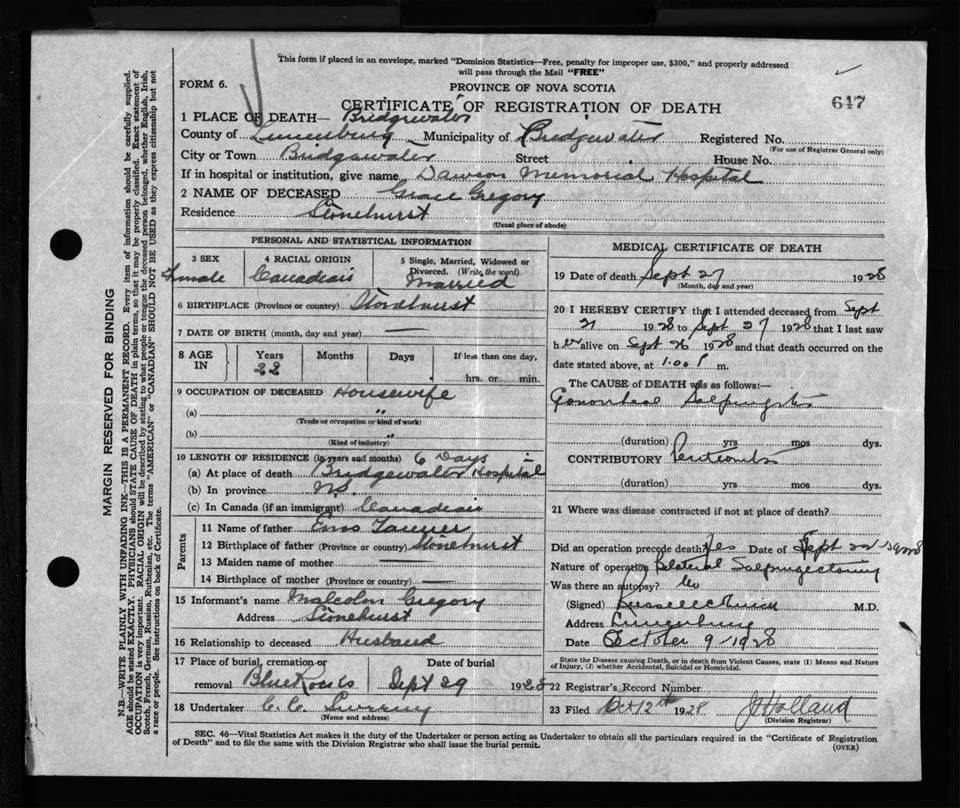 This form if placed in an envelope, marked "Dominion Statistics—Free, penalty for improper use, $300," and properly addressed
will pass through the Mail "FREE"
FORM 6.
PROVINCE OF NOVA SCOTIA
647
CERTIFICATE OF REGISTRATION OF DEATH
1 PLACE OF DEATH— Bridgewater
County of Lunenburg Municipality of Bridgewater Registered No.
(For use of Registrar General only)
City or Town Bridgewater Street House No.
If in hospital or institution, give name Dawson Memorial Hospital
2 NAME OF DECEASED Grace Gregory
Residence Stonehurst
(Usual place of abode)
MARGIN RESERVED FOR BINDING
N.B.—WRITE PLAINLY WITH UNFADING INK—THIS IS A PERMANENT RECORD. Every item of information should be carefully supplied.
AGE should be stated EXACTLY. PHYSICIANS should STATE CAUSE OF DEATH in plain terms, so that it may be properly classified. Exact statement of
OCCUPATION is very important. RACIAL ORIGIN will be described by stating to what people or tongue the deceased person belonged, whether English, Irish,
Scotch, French, German, Russian, Ruthenian, etc. The terms "AMERICAN" or "CANADIAN" SHOULD NOT BE USED as they express citizenship but not
a race or people. See instructions on back of Certificate.
PERSONAL AND STATISTICAL INFORMATION
3 SEX
Female
4 RACIAL ORIGIN
Canadian
5 Single, Married, Widowed or
Divorced. (Write the word)
Married
6 BIRTHPLACE (Province or country) Stonehurst
7 DATE OF BIRTH (month, day and year) —
8 AGE IN
Years Months Days If less than one day,
22
hrs. or min.
9 OCCUPATION OF DECEASED Housewife
(a) "
(Trade or occupation or kind of work)
(b) "
(Kind of industry)
10 LENGTH OF RESIDENCE (in years and months) 6 Days in
(a) At place of death Bridgewater Hospital
(b) In province N.S.
(c) In Canada (if an immigrant) Canadian
Parents
11 Name of father
12 Birthplace of father (Province or country) Stonehurst
13 Maiden name of mother —
14 Birthplace of mother (Province or country) —
15 Informant's name Malcolm Gregory
Address Stonehurst
16 Relationship to deceased Husband
17 Place of burial, cremation or
removal Blue Rocks
Date of burial
Sept 29 1928
18 Undertaker C. C.
(Name and address)
MEDICAL CERTIFICATE OF DEATH
19 Date of death Sept 27 1928
(Month, day and year)
20 I HEREBY CERTIFY that I attended deceased from Sept
21 1928 to Sept 27 1928 that I last saw
her alive on Sept 26 1928 and that death occurred on the
date stated above, at 1.00 P m.
The CAUSE of DEATH was as follows:—
Salpingitis
(duration) yrs mos dys.
CONTRIBUTORY Peritonitis
(duration) yrs mos dys.
21 Where was disease contracted if not at place of death?
Did an operation precede death? Yes Date of Sept 22 1928
Nature of operation Bilateral Salpingectomy
Was there an autopsy? No
(Signed) M.D.
Address Lunenburg
Date October 9 1928
State the Disease causing Death, or in death from Violent Causes, state (1) Means and Nature
of Injury, (2) whether Accidental, Suicidal or Homicidal.
22 Registrar's Record Number
23 Filed Oct 12th 1928 J Holland
(Division Registrar)
SEC. 46—Vital Statistics Act makes it the duty of the Undertaker or person acting as Undertaker to obtain all the particulars required in the "Certificate of Registration
of Death" and to file the same with the Division Registrar who shall issue the burial permit.
(OVER)